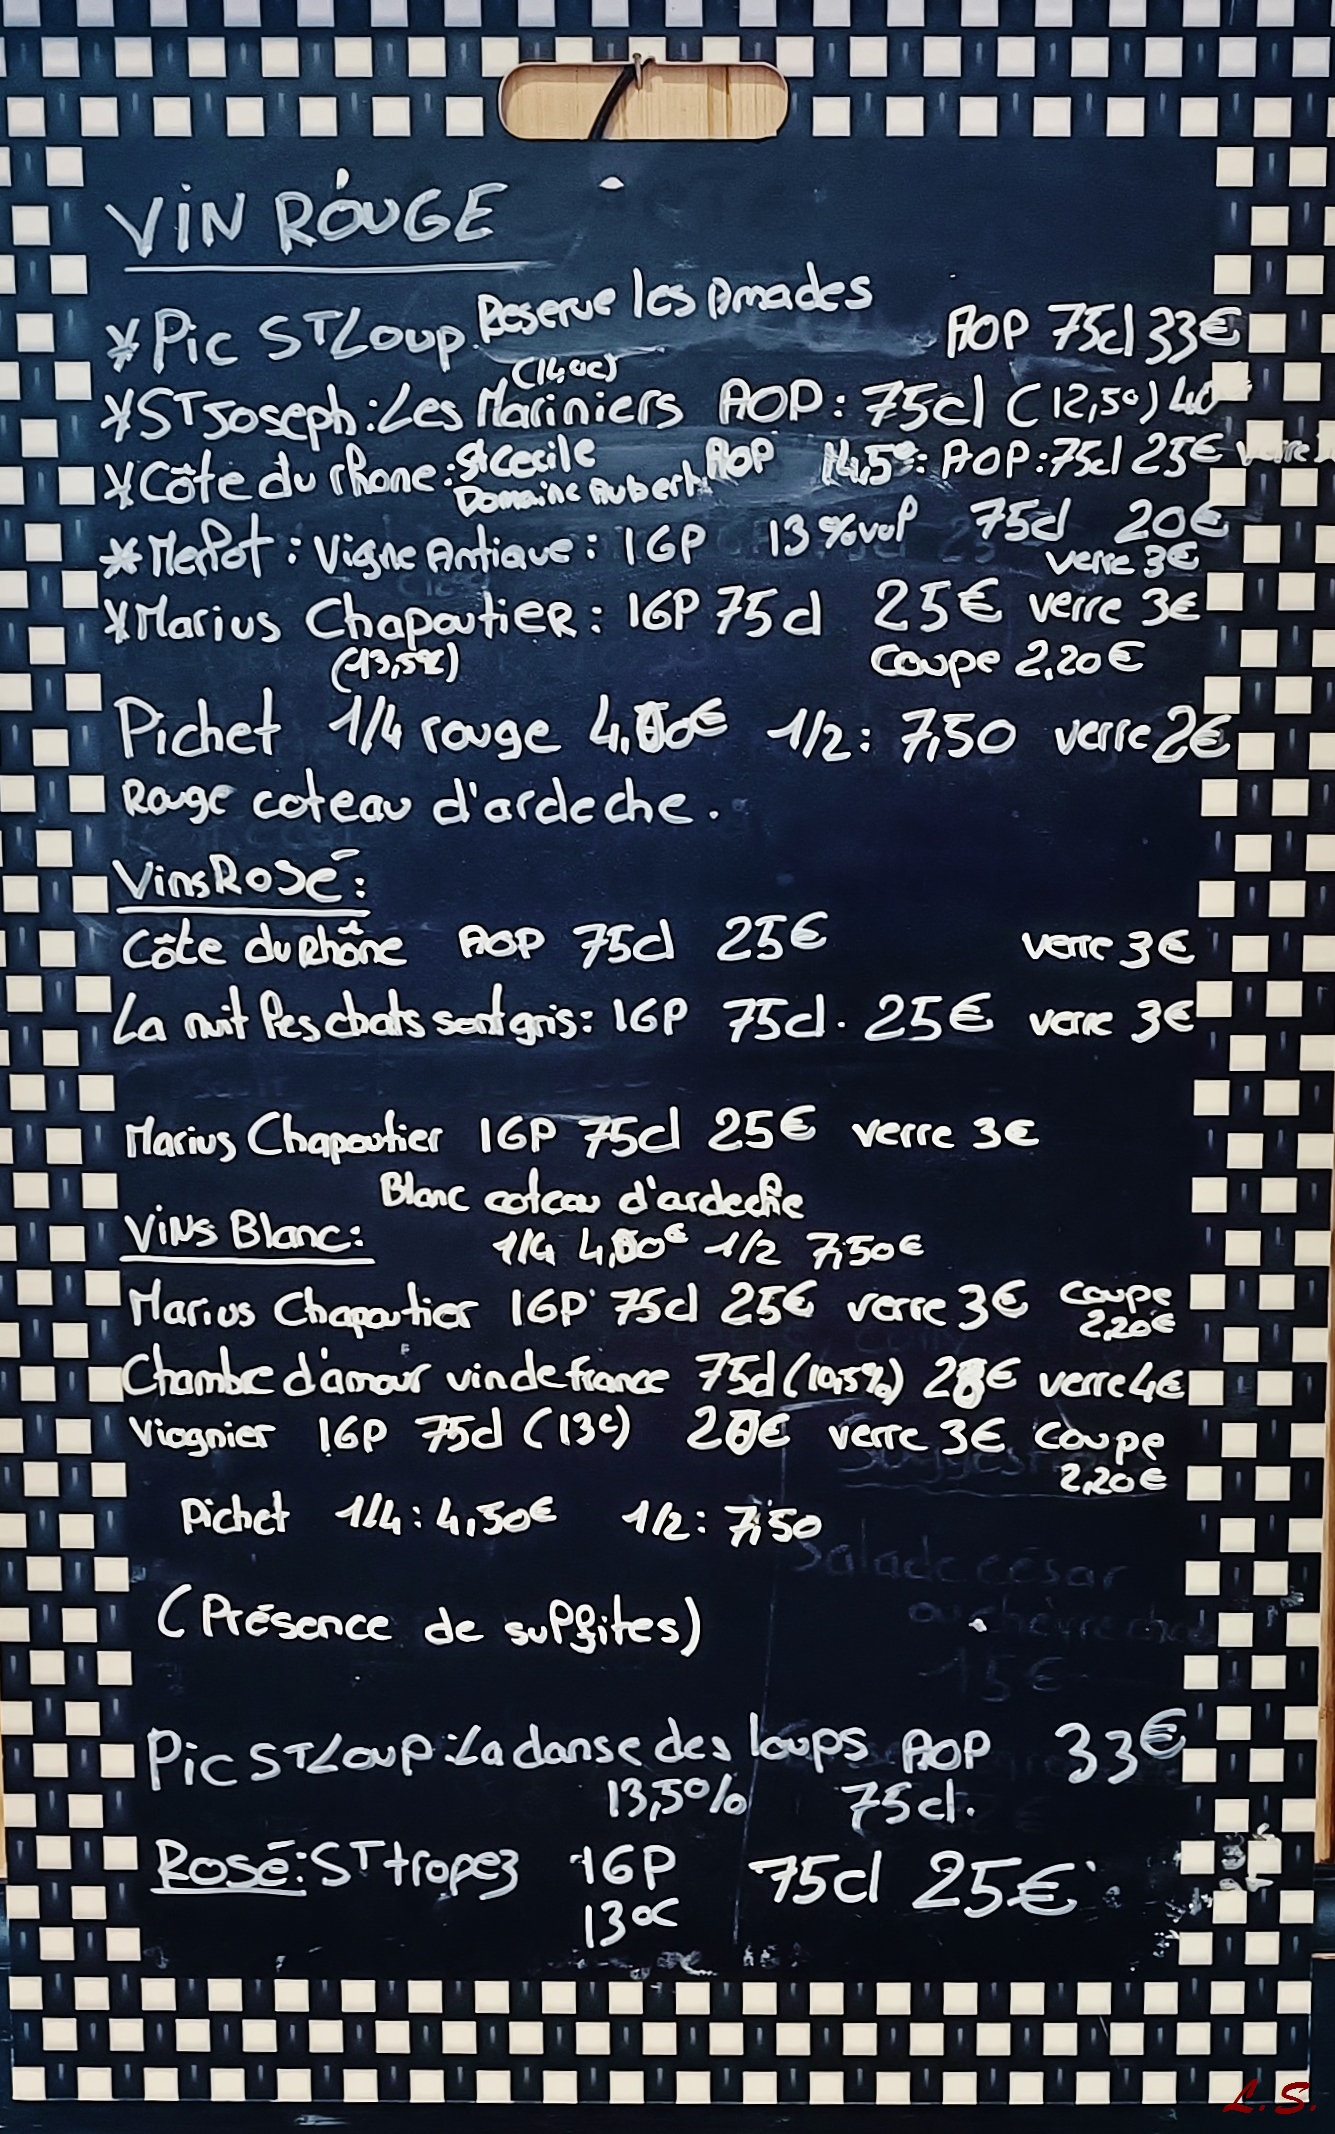 VIN ROUGE
* Pic ST Loup Reserve les Amades AOP 75cl 33€
* ST Joseph : Les Mariniers AOP : 75cl (12,5°) 40
* Côte du rhone : St Cecile AOP 14,5° : AOP : 75cl 25€ verre
Domaine Aubert
* Merlot : Vigne Antique : IGP 13%vol 75cl 20€
verre 3€
* Marius Chapoutier : IGP 75cl 25€ verre 3€
(13,5%) Coupe 2,20€
Pichet 1/4 rouge 4,00€ 1/2 : 7,50 verre 2€
Rouge coteau d'ardeche .
Vins Rosé :
Côte du Rhône AOP 75cl 25€ verre 3€
La nuit les chats sont gris : IGP 75cl . 25€ verre 3€
Marius Chapoutier IGP 75cl 25€ verre 3€
Blanc coteau d'ardeche
Vins Blanc :
1/4 4,00€ 1/2 7,50€
Marius Chapoutier IGP 75cl 25€ verre 3€ Coupe
2,20€
Chambre d'amour vin de france 75cl (10,5%) 28€ verre 4€
Viognier IGP 75cl (13°) 20€ verre 3€ Coupe
2,20€
Pichet 1/4 : 4,50€ 1/2 : 7,50
(Présence de sulfites)
Salade césar
15€
Pic ST Loup : La danse des loups AOP 33€
13,5% 75cl.
Rosé : ST tropez IGP 75cl 25€
13°
L.S.